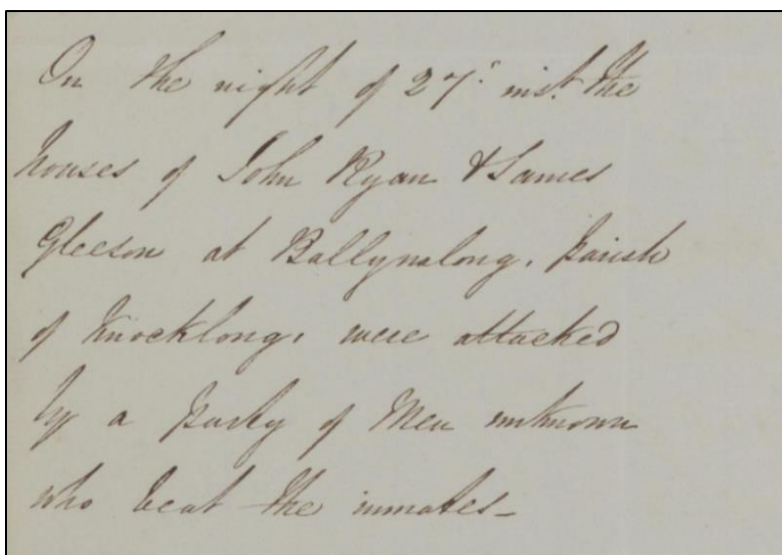 On the night of 27th inst. the
houses of John Ryan & James
Gleeson at Ballynalong, parish
of Knocklong, were attacked
by a party of Men unknown
who beat the inmates_